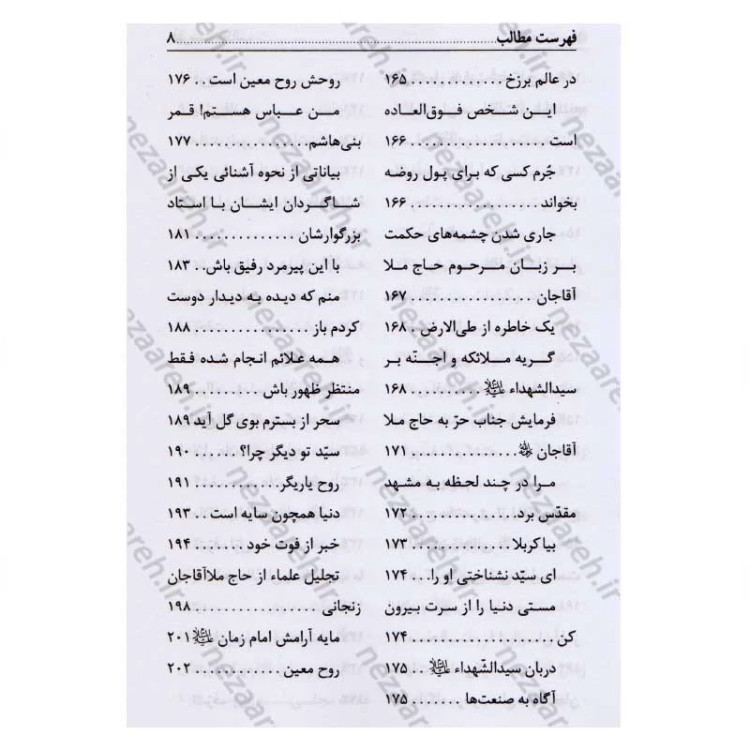 فهرست مطالب ........................................ ۸
در عالم برزخ ............. ۱۶۵
ایـن شـخص فـوق‌العـاده
است ..................... ۱۶۶
جُرم کسی که برای پول روضه
بخواند ................... ۱۶۶
جاری شدن چشمه‌های حکمت
بـر زبـان مـرحـوم حـاج مـلا
آقاجان ................... ۱۶۷
یک خاطره از طی‌الارض . ۱۶۸
گـریه مـلائکه و اجنّـه بـر
سیدالشهداء علیه‌السلام .......... ۱۶۸
فرمایش جناب حرّ به حاج ملا
آقاجان ................ ۱۷۱
مـرا در چند لحظه به مشهد
مقدّس برد ............... ۱۷۲
بیا کربلا ................. ۱۷۳
ای سیّد نشناختی او را .... ۱۷۴
مسـتی دنیا را از سرت بیرون
کن ...................... ۱۷۴
دربان سیدالشّهداء علیه‌السلام ... ۱۷۵
آگاه به صنعت‌ها ......... ۱۷۵
روحش روح معین است .. ۱۷۶
مـن عـباس هسـتم! قـمر
بنی‌هاشم ................. ۱۷۷
بیاناتی از نحوه آشنائی یکی از
شـاگـردان ایشـان بـا اسـتاد
بزرگوارشان .............. ۱۸۱
با این پیرمرد رفیق باش .. ۱۸۳
منم که دیده به دیدار دوست
کردم باز ................. ۱۸۸
همه علائم انجام شده فـقط
منتظر ظهور باش .......... ۱۸۹
سحر از بسترم بوی گل آید ۱۸۹
سیّد تو دیگر چرا؟ ........ ۱۹۰
روح یاریگر .............. ۱۹۱
دنیا همچون سایه است .. ۱۹۳
خبر از فوت خود ......... ۱۹۴
تجلیل علماء از حاج ملاآقاجان
زنجانی .................. ۱۹۸
مایه آرامش امام زمان علیه‌السلام ۲۰۱
روح معین ............... ۲۰۲
nezaareh.ir